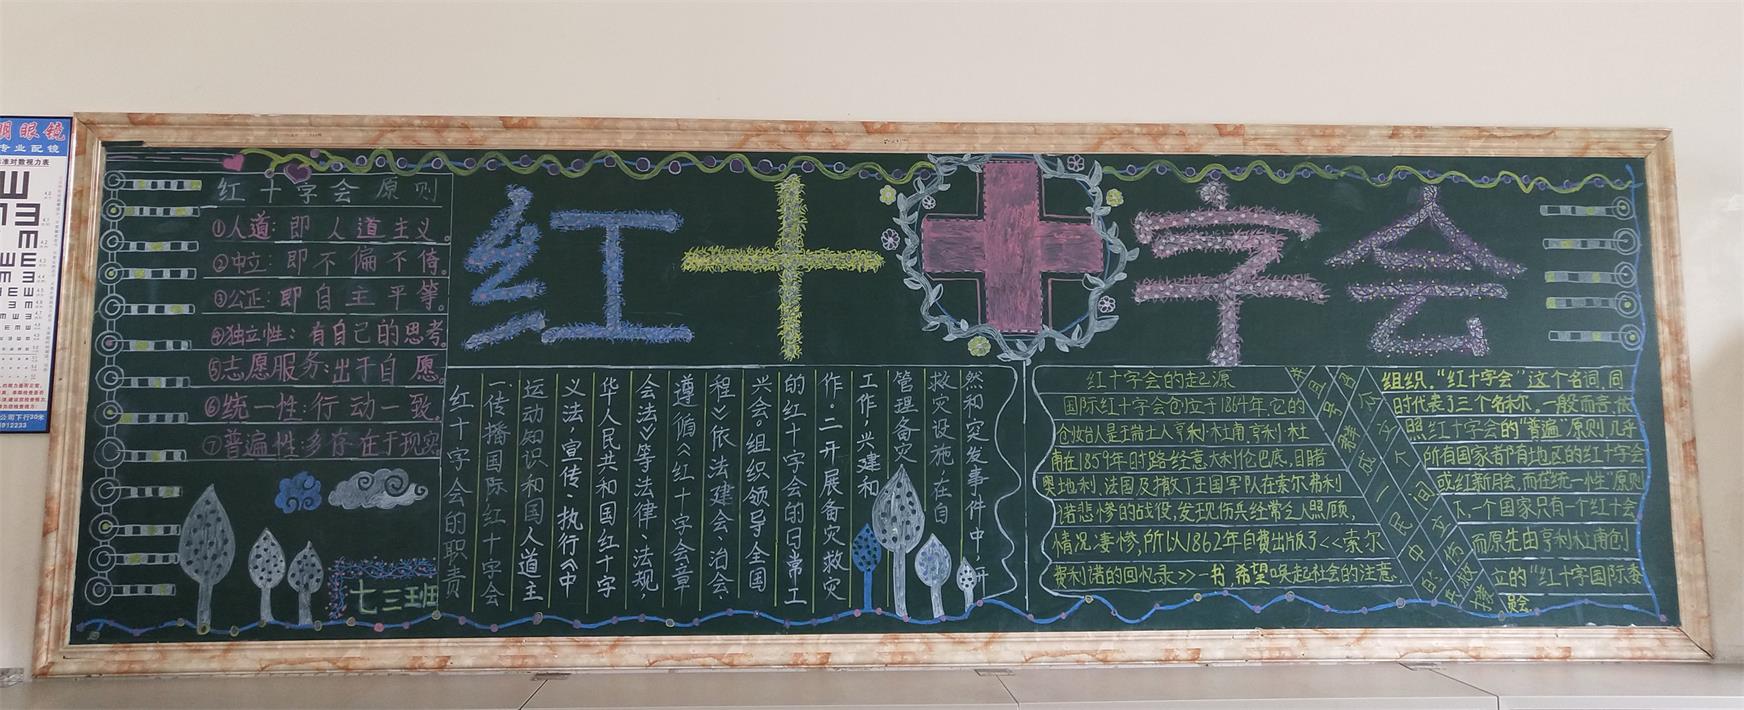 明眼镜
专业配镜
准对数视力表
公司下行30米
8912233
红十字会原则
①人道：即人道主义。
②中立：即不偏不倚。
③公正：即自主平等。
④独立性：有自己的思考。
⑤志愿服务：出于自愿。
⑥统一性：行动一致。
⑦普遍性：多存在于现实
七三班
红十字会
红十字会的职责
一、传播国际红十字会
运动知识和国人道主
义法，宣传、执行《中
华人民共和国红十字
会法》等法律、法规，
遵循《红十字会章
程》依法建会、治会、
兴会。组织领导全国
的红十字会的日常工
作。二、开展备灾救灾
工作，兴建和
管理备灾
救灾设施，在自
然和突发事件中，开
红十字会的起源
国际红十字会创立于1864年，它的
创始人是瑞士人亨利·杜南，亨利·杜
南在1859年时路经意大利伦巴底，目睹
奥地利、法国及撒丁王国军队在索尔弗利
诺悲惨的战役，发现伤兵经常乏人照顾，
情况凄惨，所以1862年自费出版了<<索尔
费利诺的回忆录>>一书，希望唤起社会的注意，
并且号群成一民中的
否个立个间立伤兵救援
组织。“红十字会”这个名词，同
时代表了三个名称。一般而言，依
照红十字会的“普遍”原则，几乎
所有国家都有地区的红十字会
或红新月会，而在“统一性”原则
下，一个国家只有一个红十字会
而原先由亨利杜南创
立的“红十字国际委
员会。